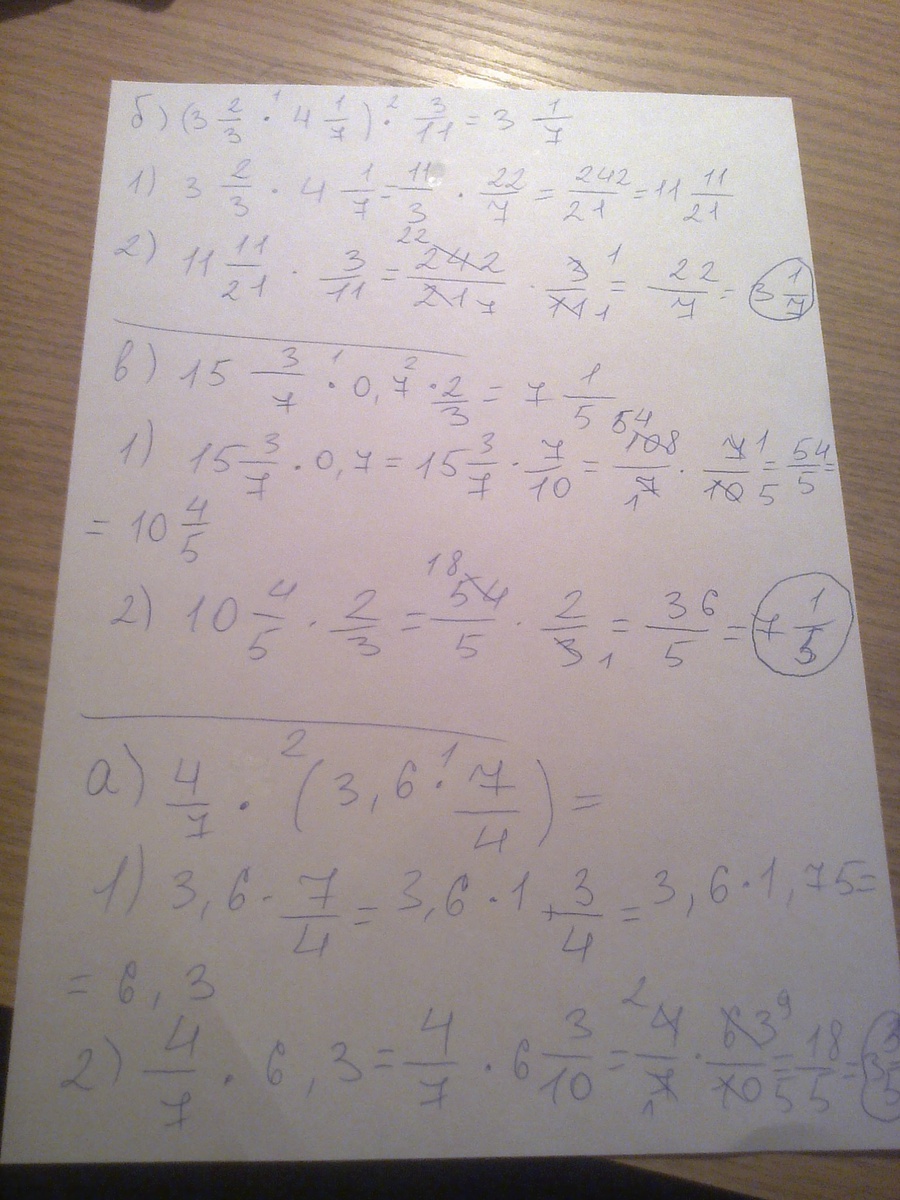 б) (3 2/3 · 4 1/7) · 3/11 = 3 1/7
1) 3 2/3 · 4 1/7 = 11/3 · 22/7 = 242/21 = 11 11/21
2) 11 11/21 · 3/11 = 242/21 · 3/11 = 22/7 = 3 1/7
в) 15 3/7 · 0,7 · 2/3 = 7 1/5
1) 15 3/7 · 0,7 = 15 3/7 · 7/10 = 108/7 · 7/10 = 54/5 =
= 10 4/5
2) 10 4/5 · 2/3 = 54/5 · 2/3 = 36/5 = 7 1/5
а) 4/7 · (3,6 · 7/4) =
1) 3,6 · 7/4 = 3,6 · 1 + 3/4 = 3,6 · 1,75 =
= 6,3
2) 4/7 · 6,3 = 4/7 · 6 3/10 = 4/7 · 63/10 = 18/5 = 3 3/5